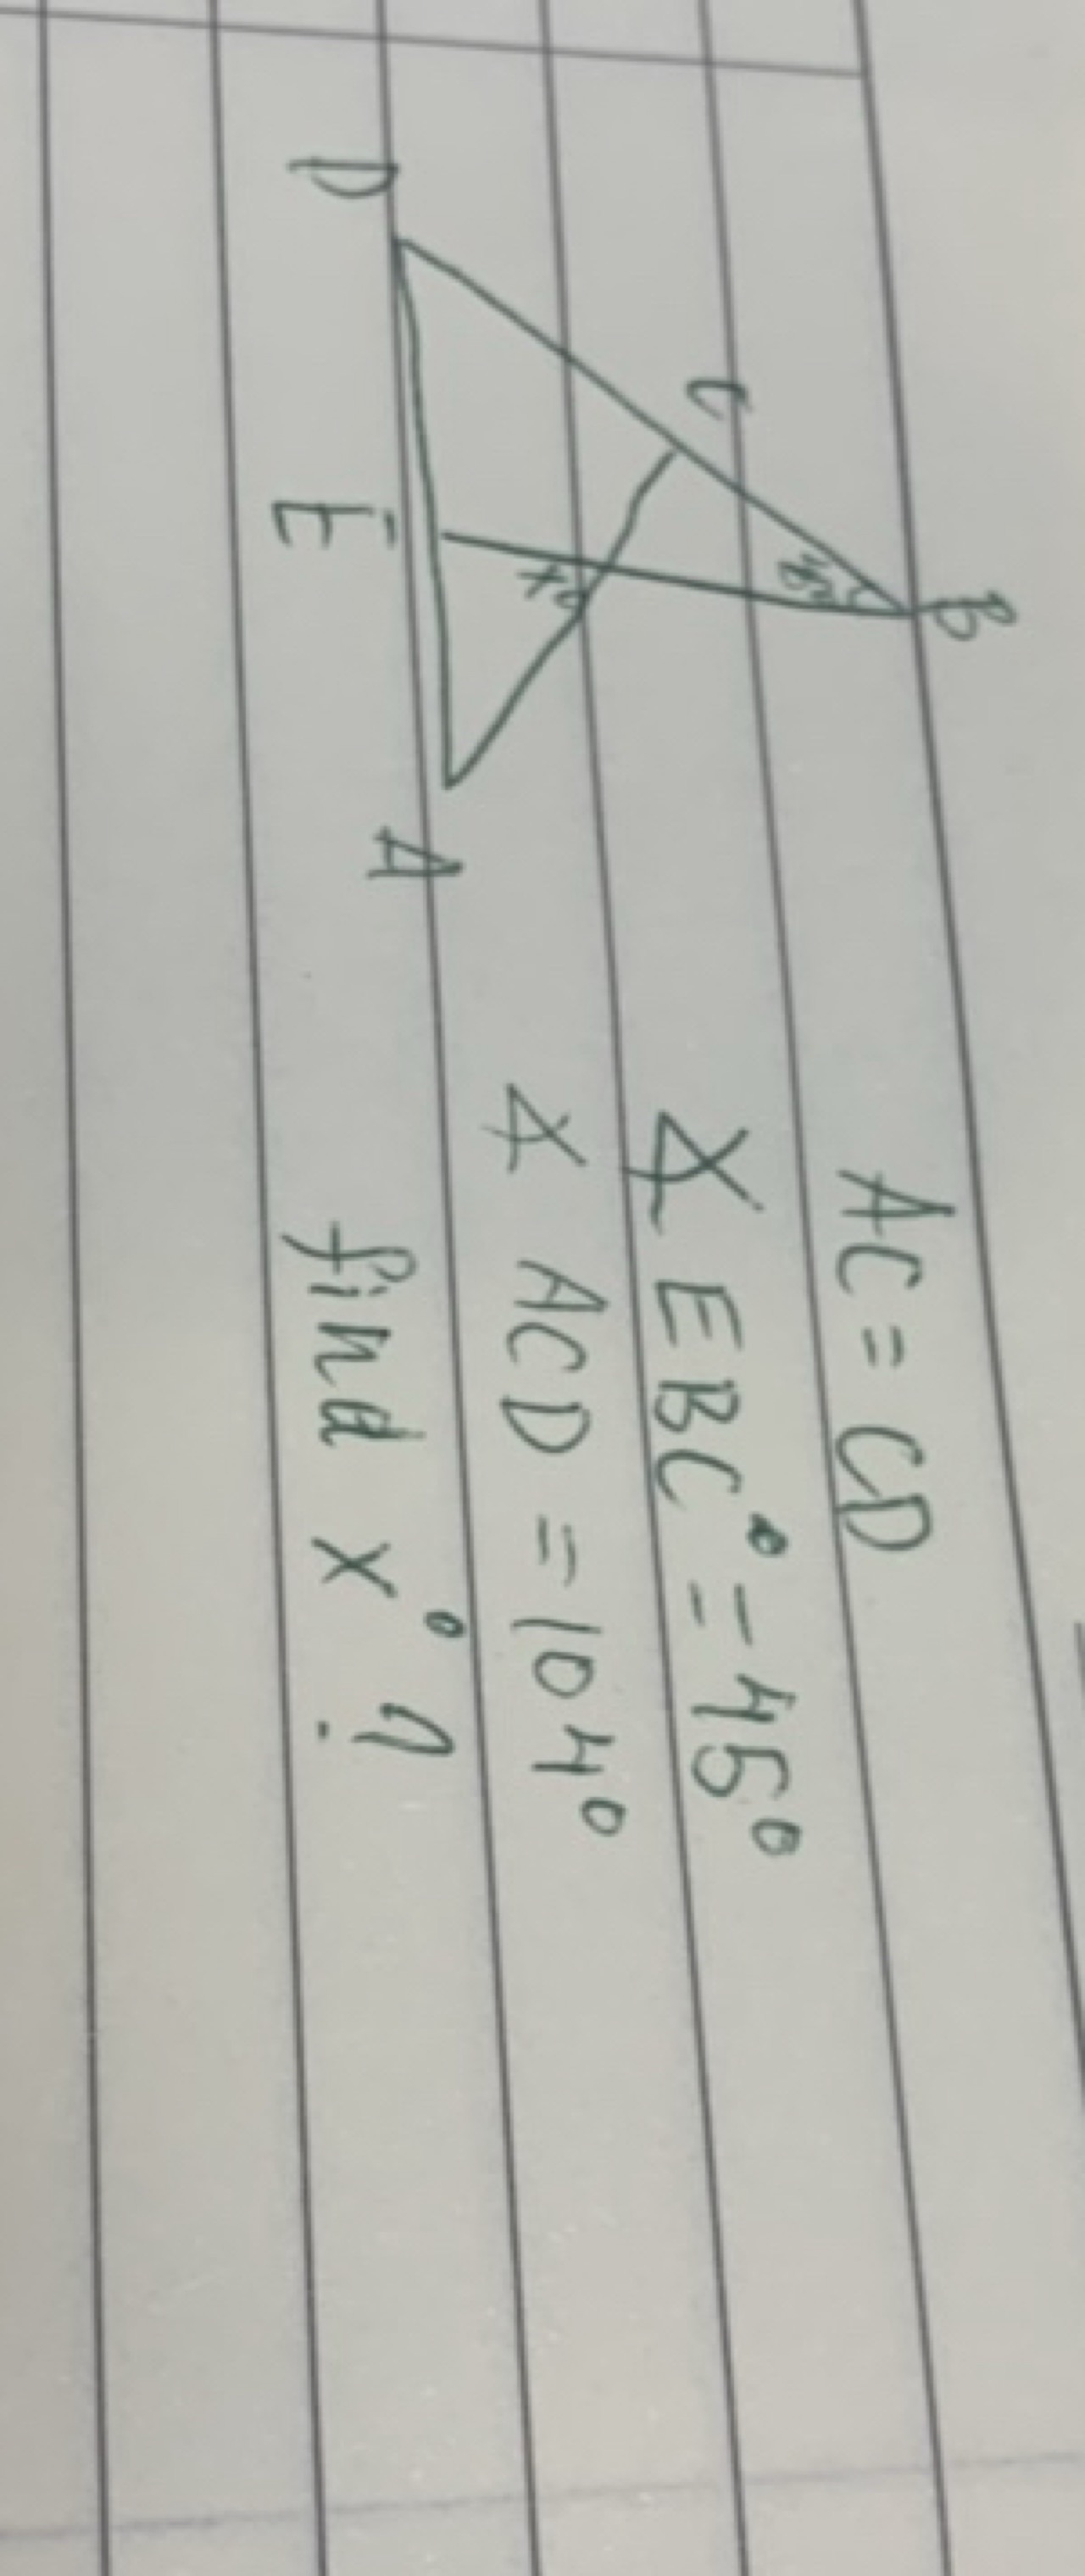 B
45°
C
x°
D
E
A
AC = CD
∡ EBC° = 45°
∡ ACD = 104°
find x° ?